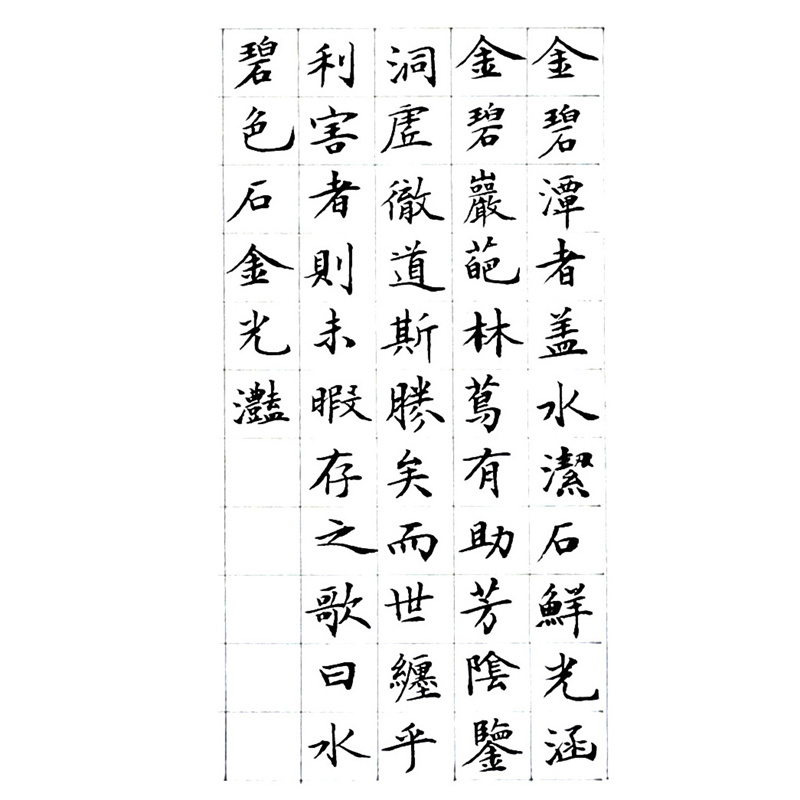 金碧潭者盖水潔石鮮光涵
金碧巖葩林蔦有助芳陰鑒
洞虛徹道斯勝矣而世纏乎
利害者則未暇存之歌曰水
碧色石金光灩